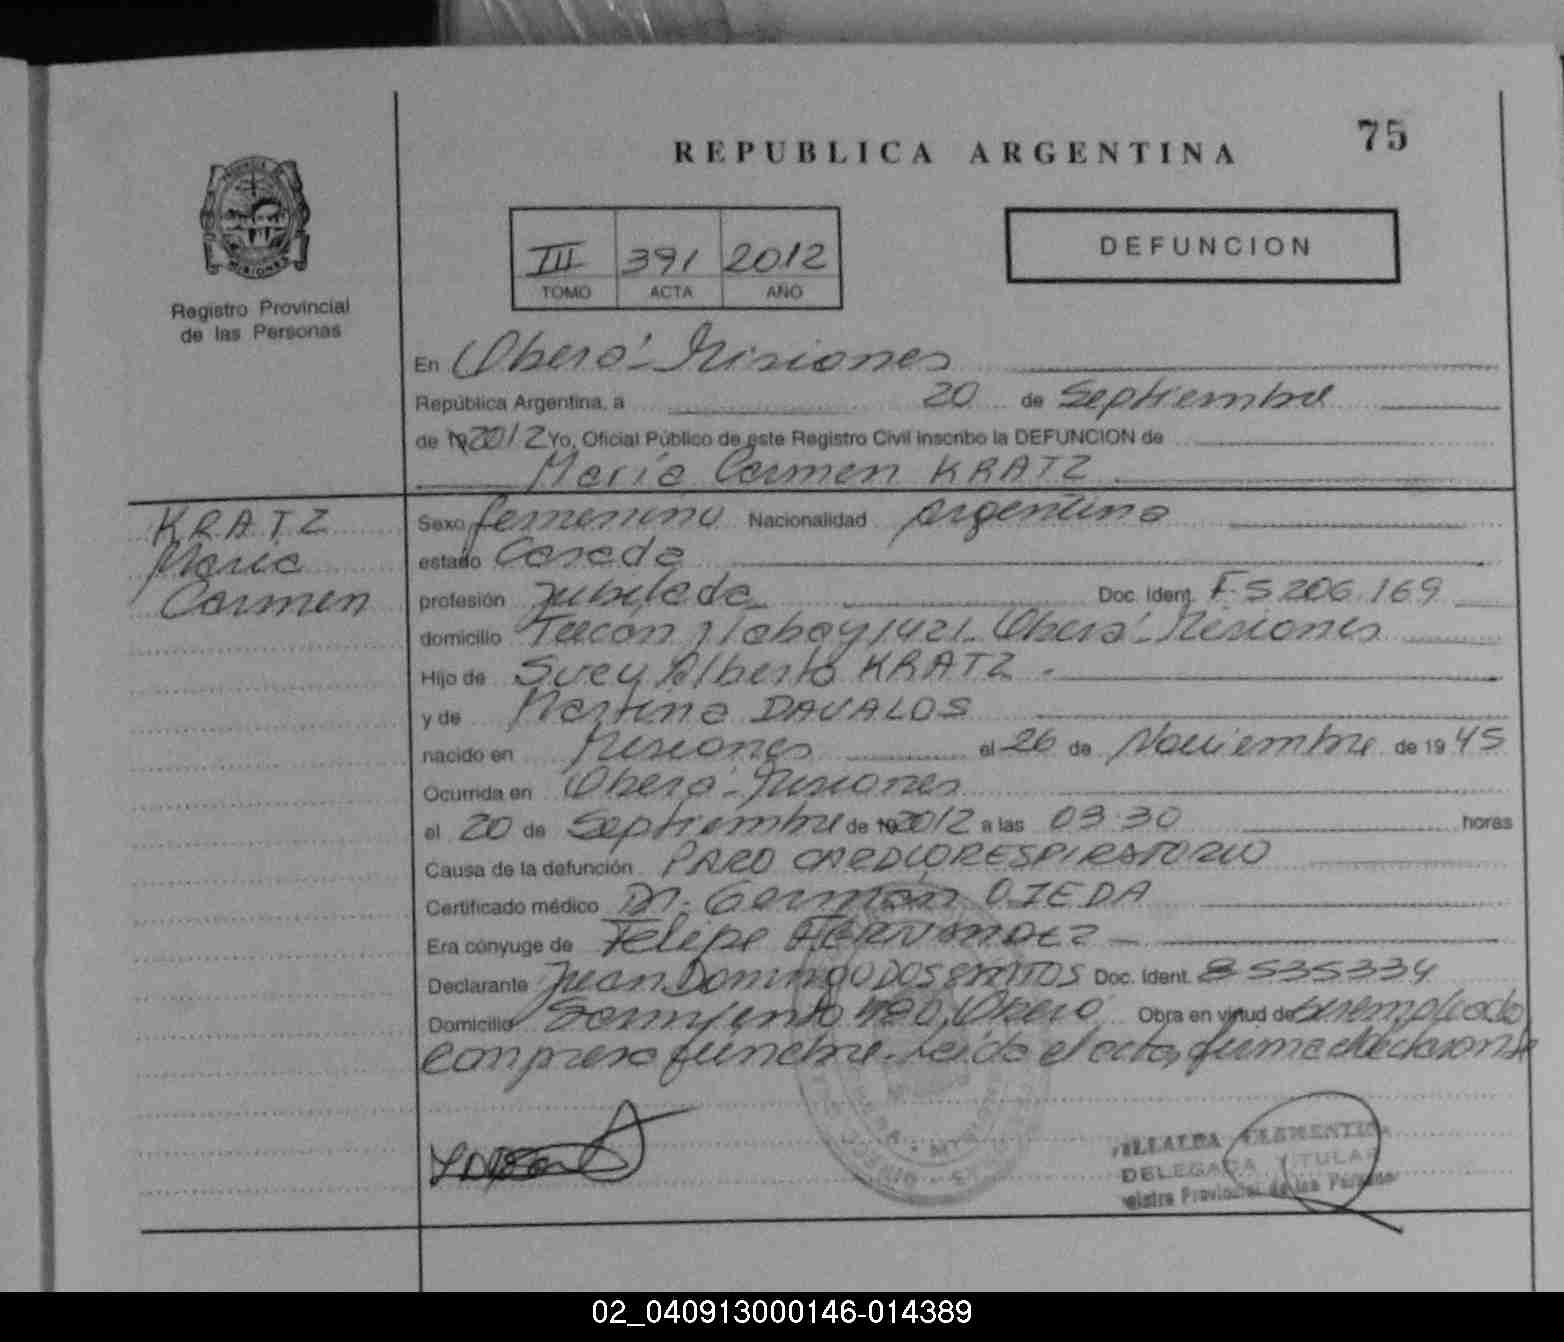 75
REPUBLICA ARGENTINA
PROVINCIA DE
MISIONES
Registro Provincial
de las Personas
III 391 2012
TOMO ACTA AÑO
DEFUNCION
En Oberá - Misiones
República Argentina, a 20 de Septiembre
de 19 2012 Yo, Oficial Público de este Registro Civil inscribo la DEFUNCION de
María Carmen KRATZ
KRATZ
María
Carmen
Sexo femenino Nacionalidad argentina
estado Casada
profesión Jubilada Doc. Ident. F 5.206.169
domicilio Tucan 1421 - Oberá - Misiones
Hijo de Suey Alberto KRATZ -
y de Martina DAVALOS
nacido en Misiones el 26 de Noviembre de 19 45
Ocurrida en Oberá - Misiones
el 20 de Septiembre de 19 2012 a las 03:30 horas
Causa de la defunción PARO CARDIORESPIRATORIO
Certificado médico Dr. German OJEDA
Era cónyuge de Felipe HERNANDEZ
Declarante Juan Domingo DOS SANTOS Doc. Ident. 8535334
Domicilio Sarmiento Oberá Obra en virtud de ser empleado
empresa fúnebre. Leída el acta, firma el declarante
VILLALBA CLEMENTINA
DELEGADA TITULAR
Registro Provincial de las Personas
02_040913000146-014389